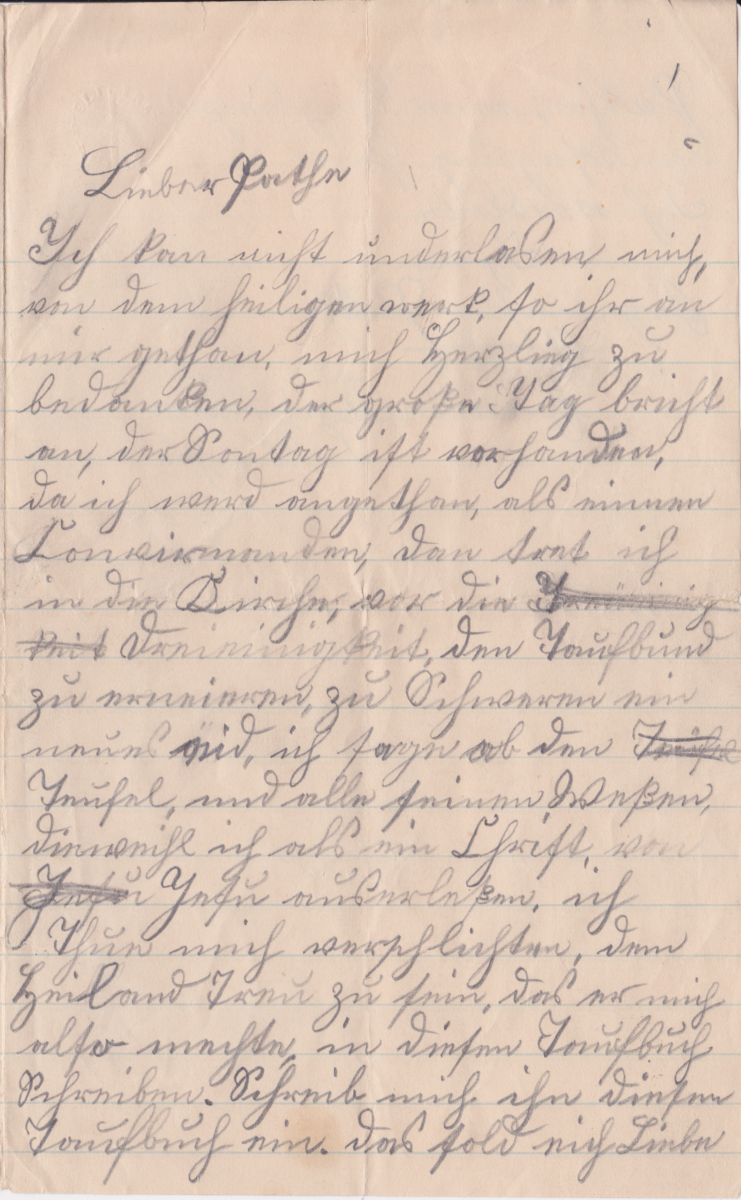 Lieber Pathe
Ich kan nicht underlasen mich,
von dem heiligen werk, so ihr an
mir gethan, mich Herzlieg zu
bedanken, der große Tag bricht
an, der Sontag ist vorhanden,
da ich werd angethan, als einnen
Convirmanden, dan tret ich
in die Kirche, vor die
keit Dreieinigkeit, den Taufbund
zu erneieren, zu Schweren ein
neues eid, ich sage ab den
Teufel, und alle seinen Weßen,
dieweihl ich als ein Christ, von
Jesu Jesu auserleßen, ich
Thue mich verschlichten, dem
Heiland Treu zu sein, das er mich
also mechte, in diesen Taufbuch
Schreiben. Schreib mich ihn diesen
Taufbuch ein. das sold eich Liebe